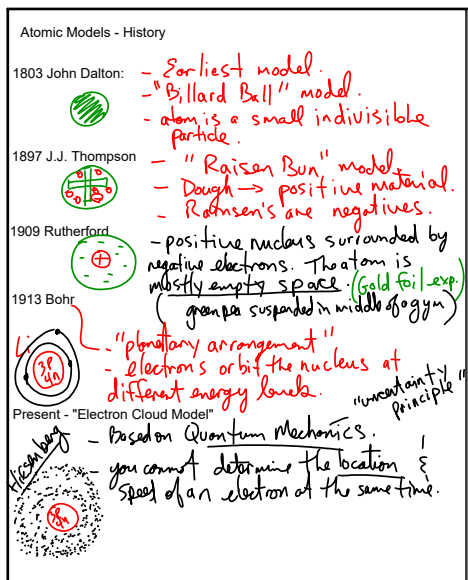 Atomic Models - History
1803 John Dalton:
- Earliest model.
- "Billard Ball" model.
- atom is a small indivisible
particle.
1897 J.J. Thompson
- "Raisen Bun" model.
- Dough → positive material.
- Rainsen's are negatives.
1909 Rutherford
+
- positive nucleus surrounded by
negative electrons. The atom is
mostly empty space. (Gold foil exp.)
(green pea suspended in middle of a gym)
1913 Bohr
Li
3P
4n
- "planetary arrangement"
- electrons orbit the nucleus at
different energy levels.
"uncertainty
principle"
Present - "Electron Cloud Model"
Hiesenberg
- Based on Quantum Mechonics.
- you cannot determine the location &
speed of an electron at the same time.
3P
4n